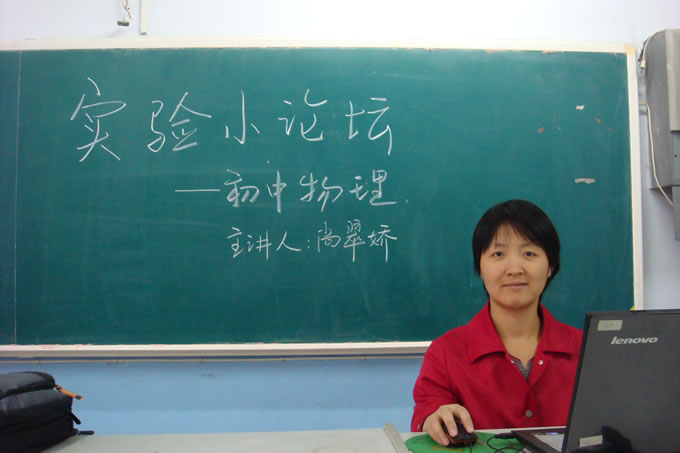 实验小论坛
—初中物理
主讲人:尚翠娇
lenovo